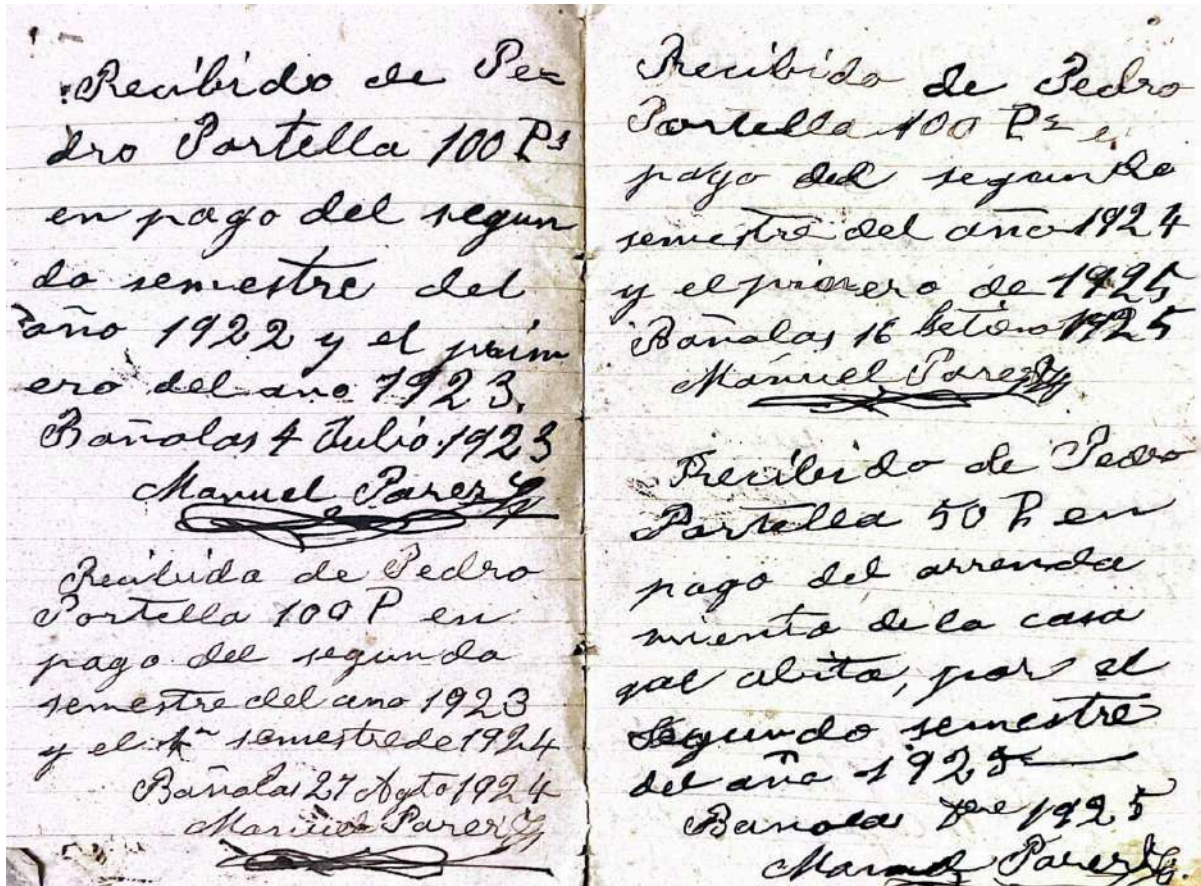 Recibido de Pe=
dro Portella 100 Ps
en pago del segun
do semestre del
año 1922 y el prim
ero del ano 1923.
Bañolas 4 Julio 1923
Manuel Parer
Recibido de Pedro
Portella 100 P en
pago del segundo
semestre del ano 1923
y el 1er semestre de 1924
Bañolas 27 Agto 1924
Manuel Parer
Recibido de Pedro
Portella 100 Ps en
pago del segundo
semestre del ano 1924
y el primero de 1925
Bañolas 16 1925
Manuel Parer
Recibido de Pedro
Portella 50 P en
pago del arrenda
miento de la casa
que abita, por el
Segundo semestre
del año 1925
1925
Manuel Parer